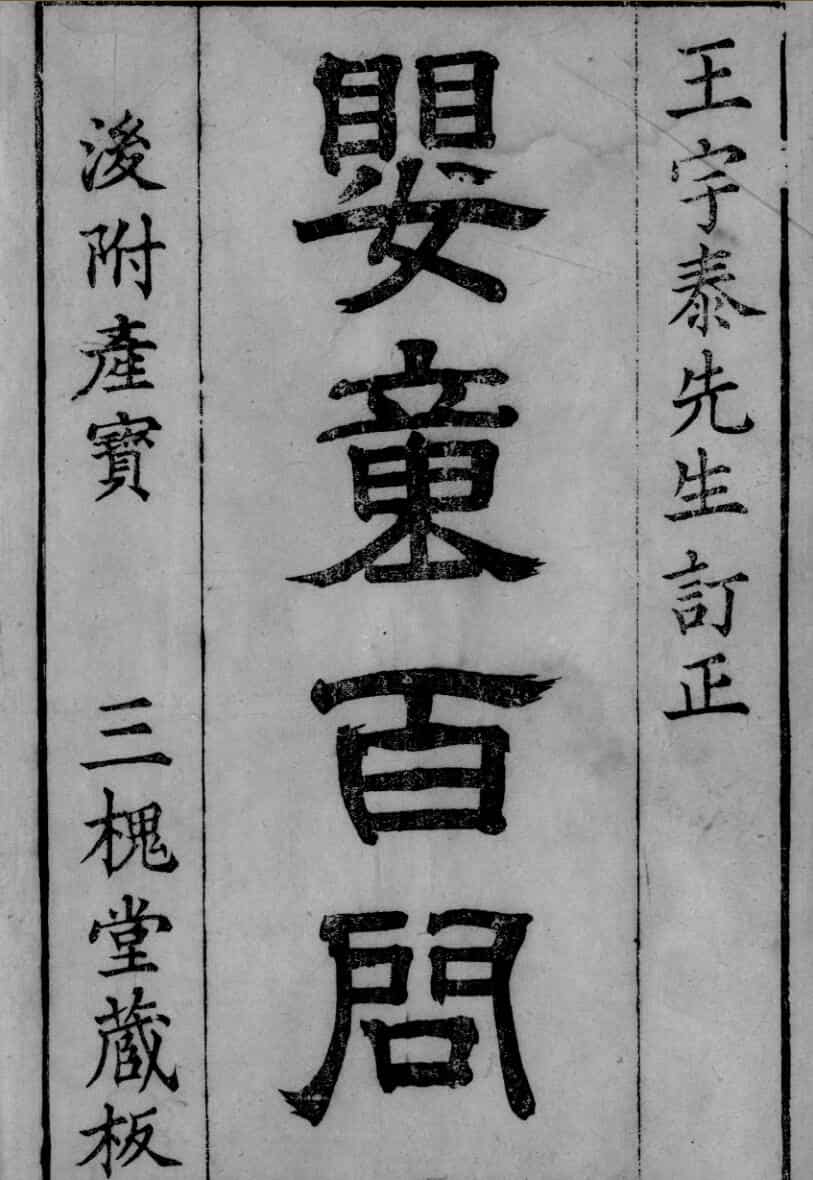 王宇泰先生訂正
嬰童百問
後附產寶　三槐堂藏板